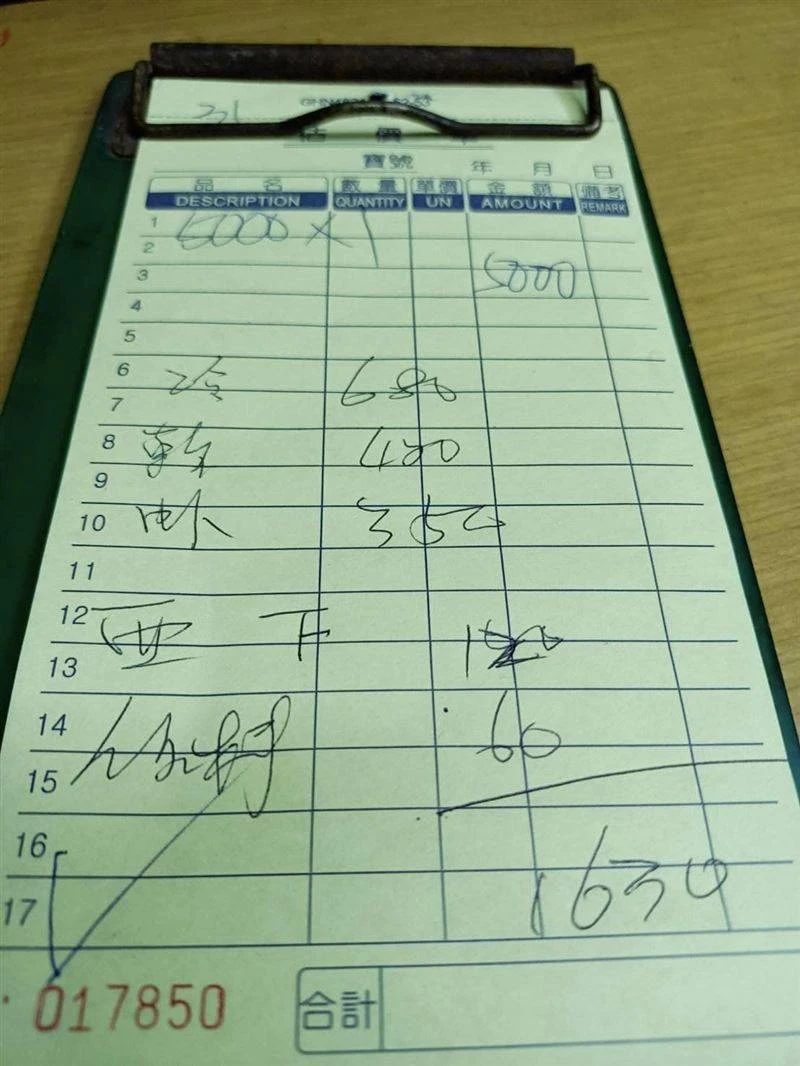 估價單
寶號 年 月 日
品名 數量 單價 金額 備考
DESCRIPTION QUANTITY UN AMOUNT REMARK
1 5000 × 1
2
3 5000
4
5
6 冷 680
7
8 幹 420
9
10 350
11
12
13
14 60
15
16
17 1630
017850 合計